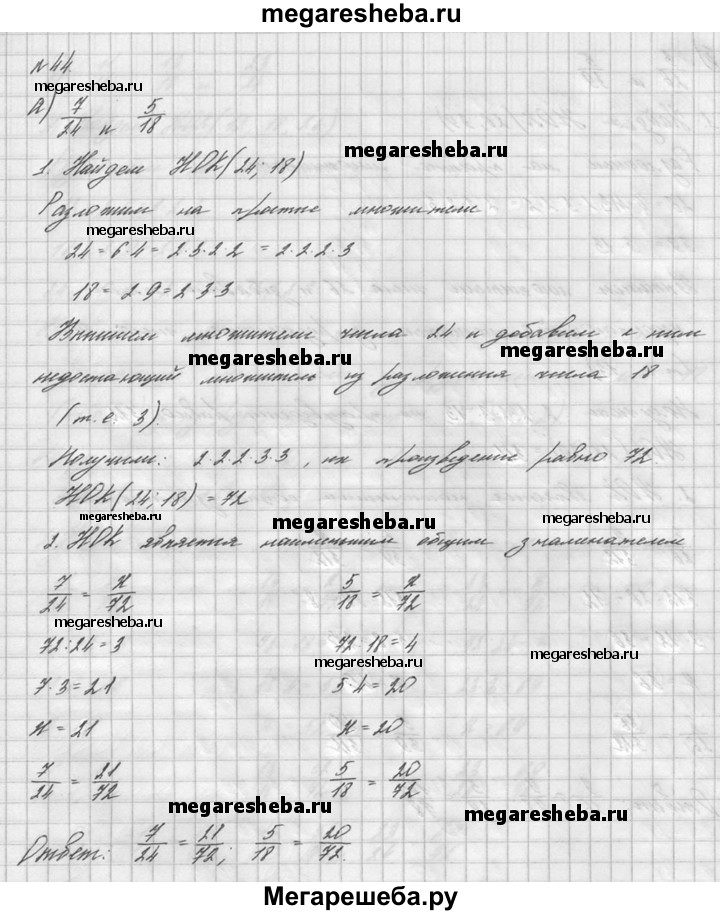 megaresheba.ru
№ 44.
megaresheba.ru
а) 7/24 и 5/18
megaresheba.ru
1. Найдем НОК(24; 18)
Разложим на простые множители
megaresheba.ru
24 = 6·4 = 2·3·2·2 = 2·2·2·3
18 = 2·9 = 2·3·3
Выпишем множители числа 24 и добавим к ним
megaresheba.ru megaresheba.ru
недостающий множитель из разложения числа 18
(т.е. 3).
Получим: 2·2·2·3·3, их произведение равно 72
НОК(24; 18) = 72
megaresheba.ru megaresheba.ru megaresheba.ru
2. НОК является наименьшим общим знаменателем
7/24 = x/72 5/18 = x/72
megaresheba.ru
72:24=3 72:18=4
megaresheba.ru megaresheba.ru
7·3=21 5·4=20
x=21 x=20
7/24 = 21/72 5/18 = 20/72
megaresheba.ru megaresheba.ru
Ответ: 7/24 = 21/72; 5/18 = 20/72.
Мегарешеба.ру